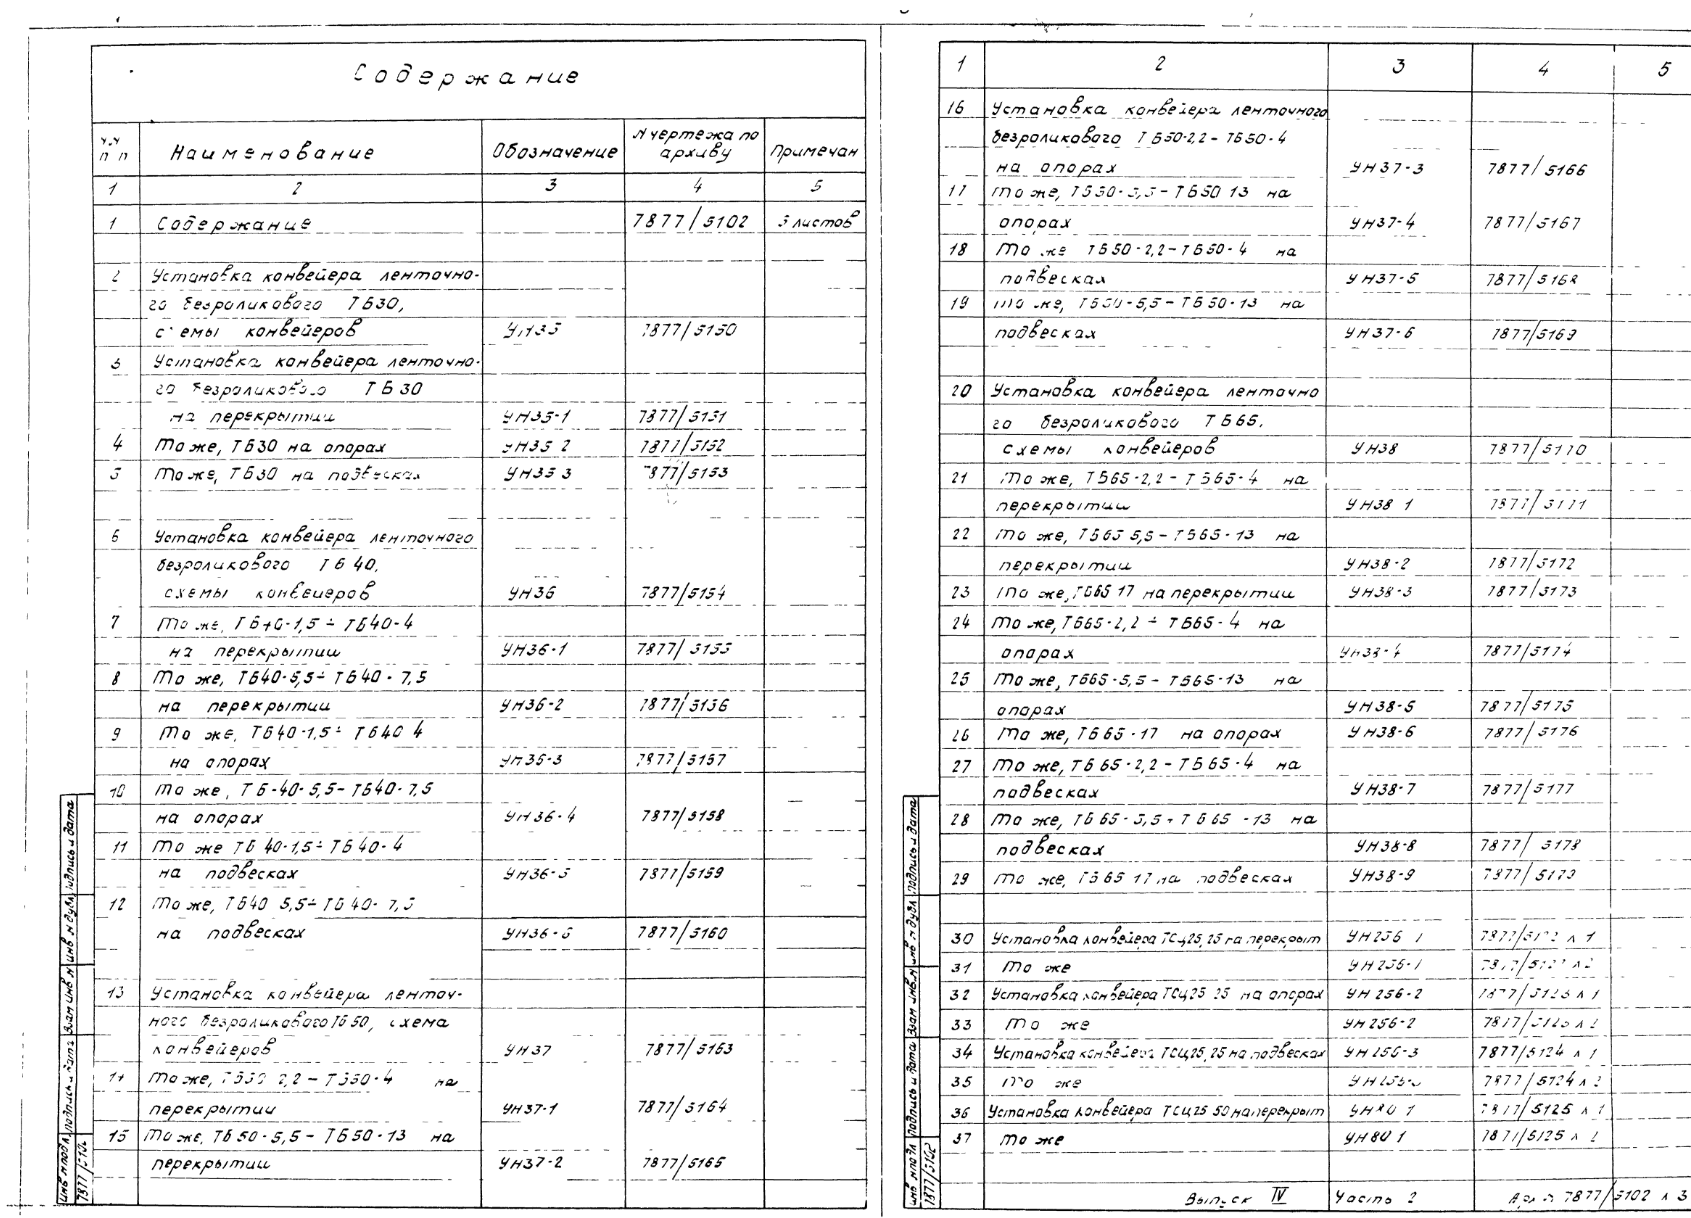 Содержание
Наименование Обозначение N чертежа по архиву Примечан
1 2 3 4 5
1 Содержание 7877/5102 3 листов
2 Установка конвейера ленточно-
го безроликового ТБ30,
схемы конвейеров УН35 7877/5150
3 Установка конвейера ленточно-
го безроликового ТБ30
на перекрытии УН35-1 7877/5151
4 То же, ТБ30 на опорах УН35 2 7877/5152
5 То же, ТБ30 на подвесках УН35 3 7877/5153
6 Установка конвейера ленточного
безроликового ТБ 40,
схемы конвейеров УН36 7877/5154
7 То же, ТБ40-1,5 ÷ ТБ40-4
на перекрытии УН36-1 7877/5155
8 То же, ТБ40-5,5 ÷ ТБ40-7,5
на перекрытии УН36-2 7877/5156
9 То же, ТБ40-1,5 ÷ ТБ40 4
на опорах УН36-3 7877/5157
10 То же, ТБ-40-5,5 – ТБ40-7,5
на опорах УН36-4 7877/5158
11 То же ТБ 40-1,5 ÷ ТБ40-4
на подвесках УН36-5 7877/5159
12 То же, ТБ40 5,5 ÷ ТБ40-7,5
на подвесках УН36-6 7877/5160
13 Установка конвейера ленточ-
ного безроликового ТБ50, схема
конвейеров УН37 7877/5163
14 То же, ТБ50 2,2 – ТБ50-4 на
перекрытии УН37-1 7877/5164
15 То же, ТБ50-5,5 – ТБ50-13 на
перекрытии УН37-2 7877/5165
инв N подл подпись и дата Взам инв N инв N дубл подпись и дата
7877/5102
1 2 3 4 5
16 Установка конвейера ленточного
безроликового ТБ50-2,2 – ТБ50-4
на опорах УН37-3 7877/5166
17 То же, ТБ50-5,5 – ТБ50 13 на
опорах УН37-4 7877/5167
18 То же ТБ50-2,2 – ТБ50-4 на
подвесках УН37-5 7877/5168
19 То же, ТБ50-5,5 – ТБ50-13 на
подвесках УН37-6 7877/5169
20 Установка конвейера ленточно
го безроликового ТБ65,
схемы конвейеров УН38 7877/5170
21 То же, ТБ65-2,2 – ТБ65-4 на
перекрытии УН38 1 7877/5171
22 То же, ТБ65 5,5 – ТБ65-13 на
перекрытии УН38-2 7877/5172
23 То же, ТБ65 17 на перекрытии УН38-3 7877/5173
24 То же, ТБ65-2,2 ÷ ТБ65-4 на
опорах УН38-4 7877/5174
25 То же, ТБ65-5,5 – ТБ65-13 на
опорах УН38-5 7877/5175
26 То же, ТБ65-17 на опорах УН38-6 7877/5176
27 То же, ТБ65-2,2 – ТБ65-4 на
подвесках УН38-7 7877/5177
28 То же, ТБ65-5,5 ÷ ТБ65-13 на
подвесках УН38-8 7877/5178
29 То же, ТБ65 17 на подвесках УН38-9 7877/5179
30 Установка конвейера ТСЦ25,25 на перекрыт УН256 1
31 То же УН256-1
32 Установка конвейера ТСЦ25 25 на опорах УН 256-2 7877/5123 л 1
33 То же УН256-2
34 Установка конвейера ТСЦ25,25 на подвесках УН256-3 7877/5124 л 1
35 То же УН256-3 7877/5124 л 2
36 Установка конвейера ТСЦ25 50 на перекрыт УН80 1 7877/5125 л 1
37 То же УН80 1 7877/5125 л 2
Выпуск IV Часть 2 7877/5102 л 3
инв N подл подпись и дата Взам инв.N инв N дубл подпись и дата
7877/5102